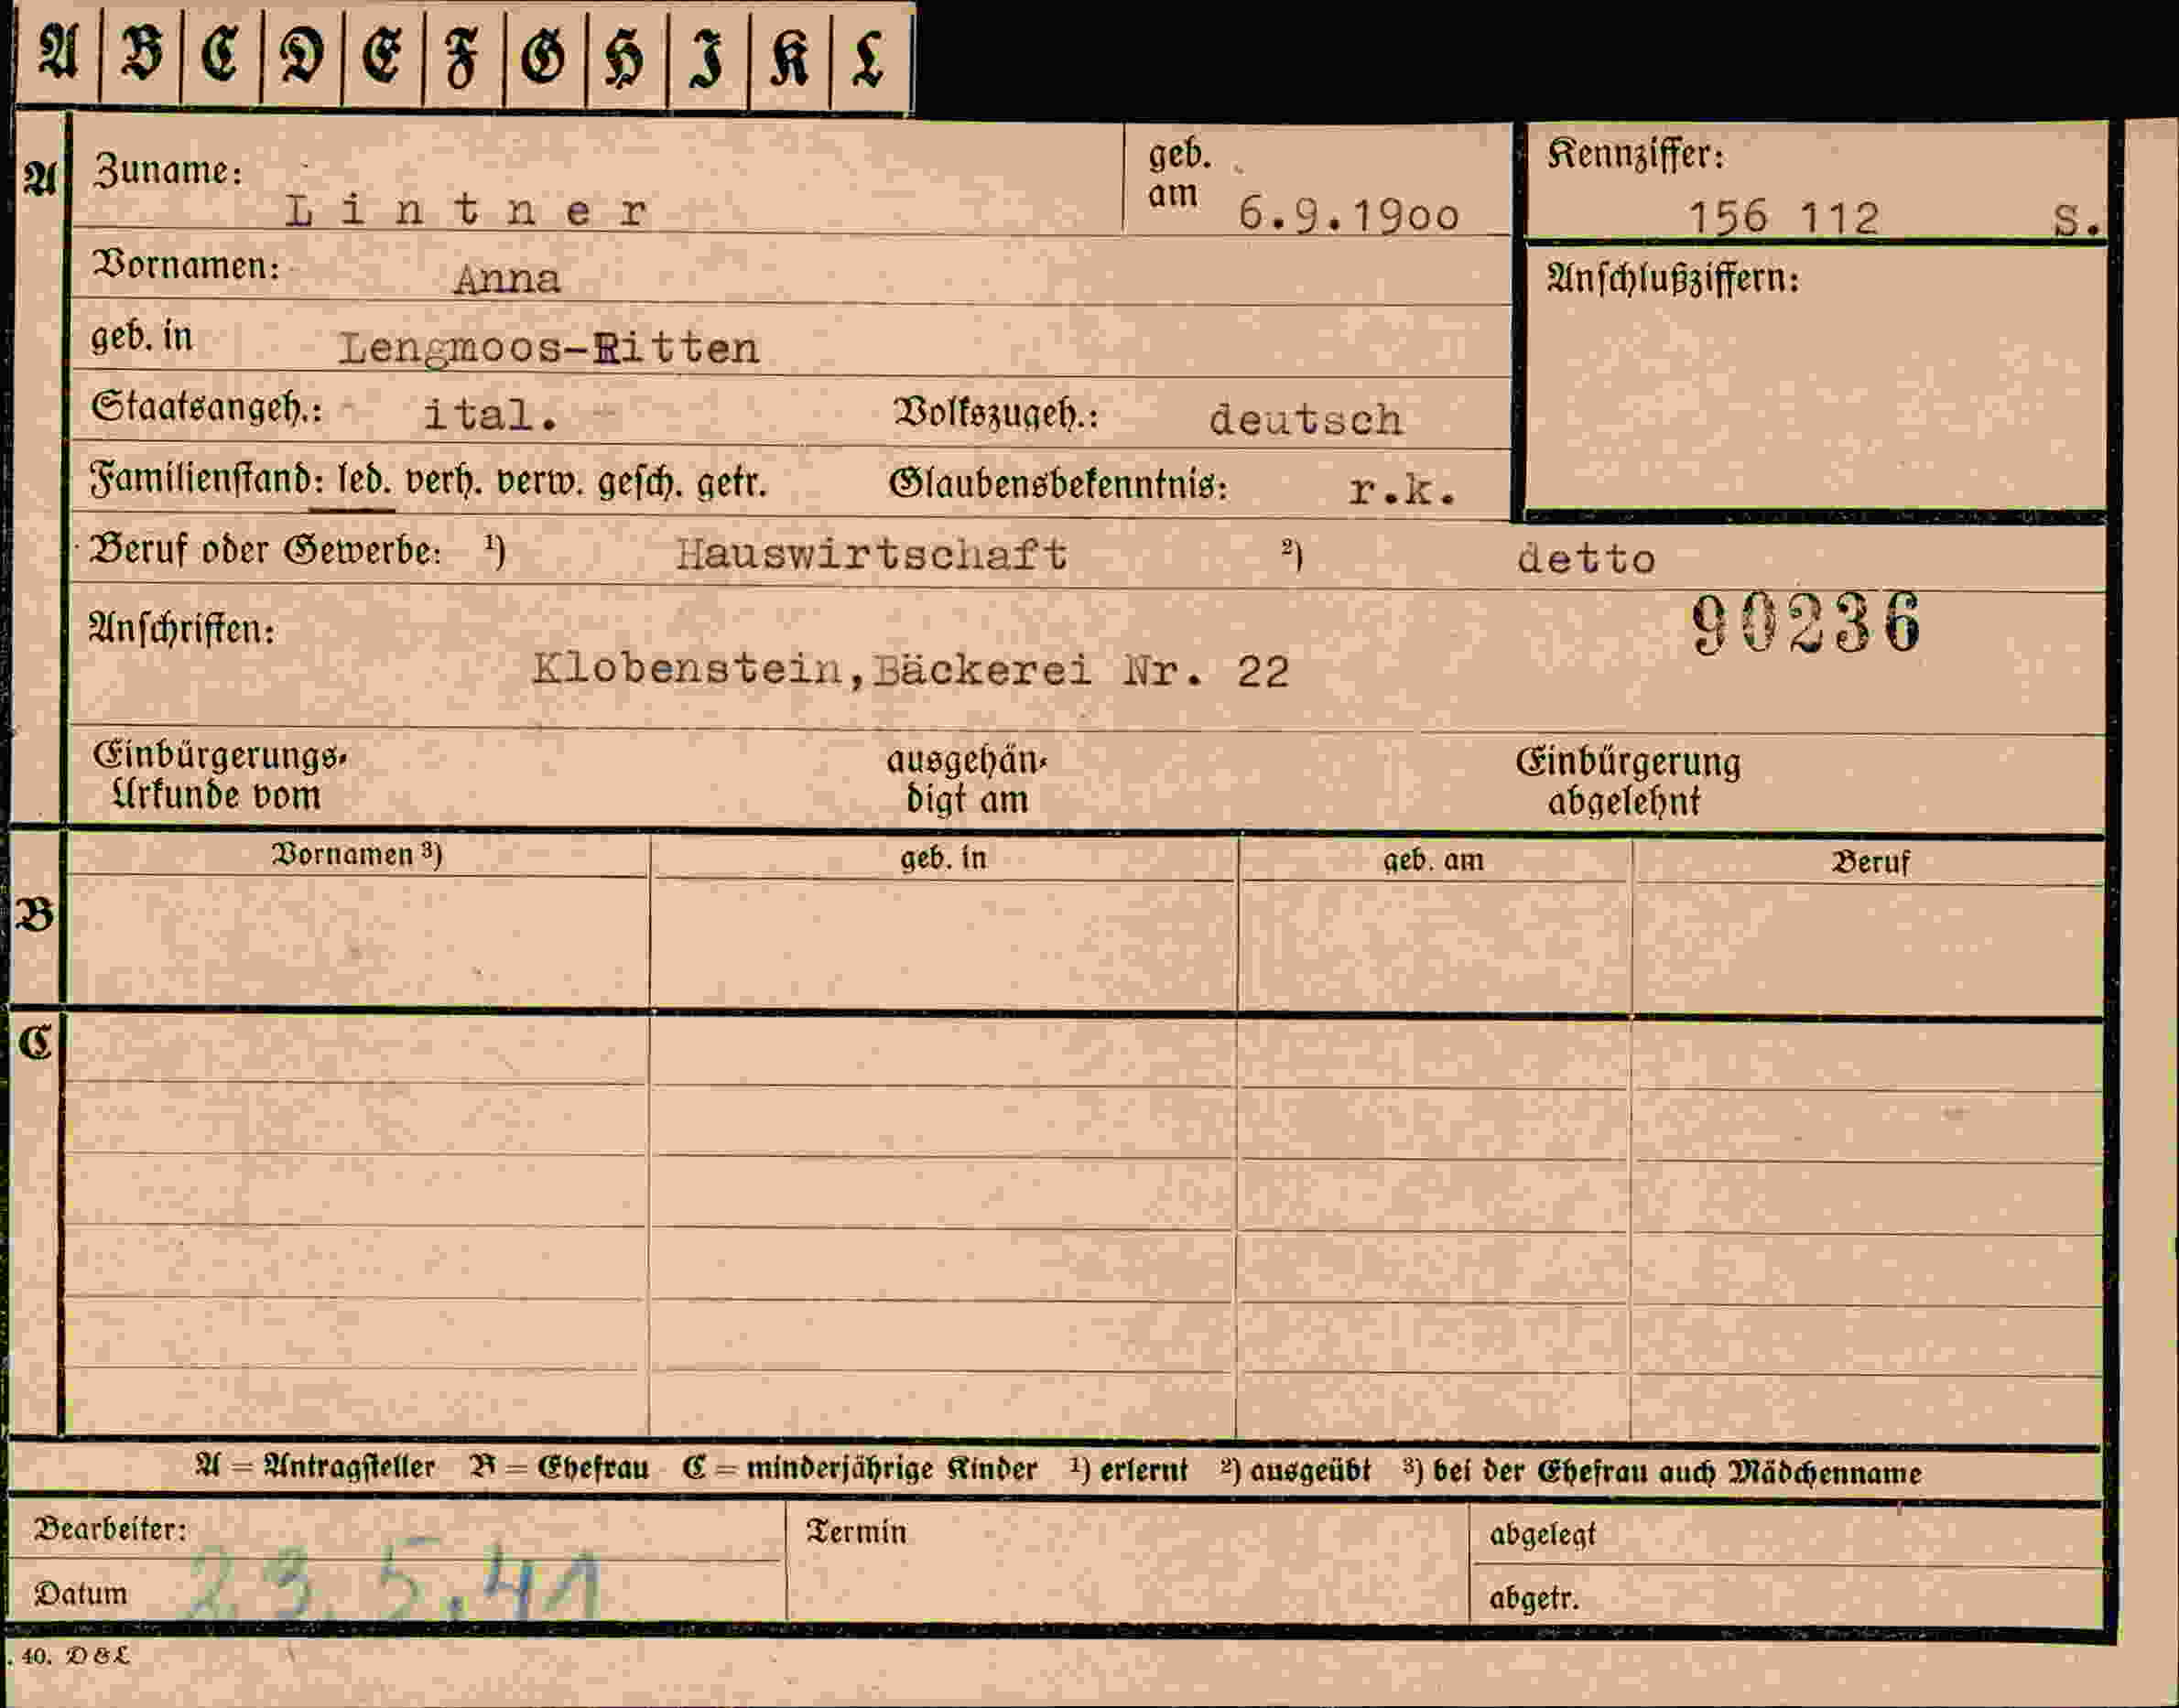 A B C D E F G H I K L
A Zuname: Lintner geb. am 6.9.1900 Kennziffer: 156 112 S.
Vornamen: Anna Anschlußziffern:
geb. in Lengmoos-Ritten
Staatsangeh.: ital. Volkszugeh.: deutsch
Familienstand: led. verh. verw. gesch. getr. Glaubensbekenntnis: r.k.
Beruf oder Gewerbe: ¹) Hauswirtschaft ²) detto
90236
Anschriften:
Klobenstein,Bäckerei Nr. 22
Einbürgerungs- ausgehän- Einbürgerung
Urkunde vom digt am abgelehnt
Vornamen ³) geb. in geb. am Beruf
B
C
A = Antragsteller B = Ehefrau C = minderjährige Kinder ¹) erlernt ²) ausgeübt ³) bei der Ehefrau auch Mädchenname
Bearbeiter: Termin abgelegt
Datum 23.5.41 abgetr.
. 40. D & L